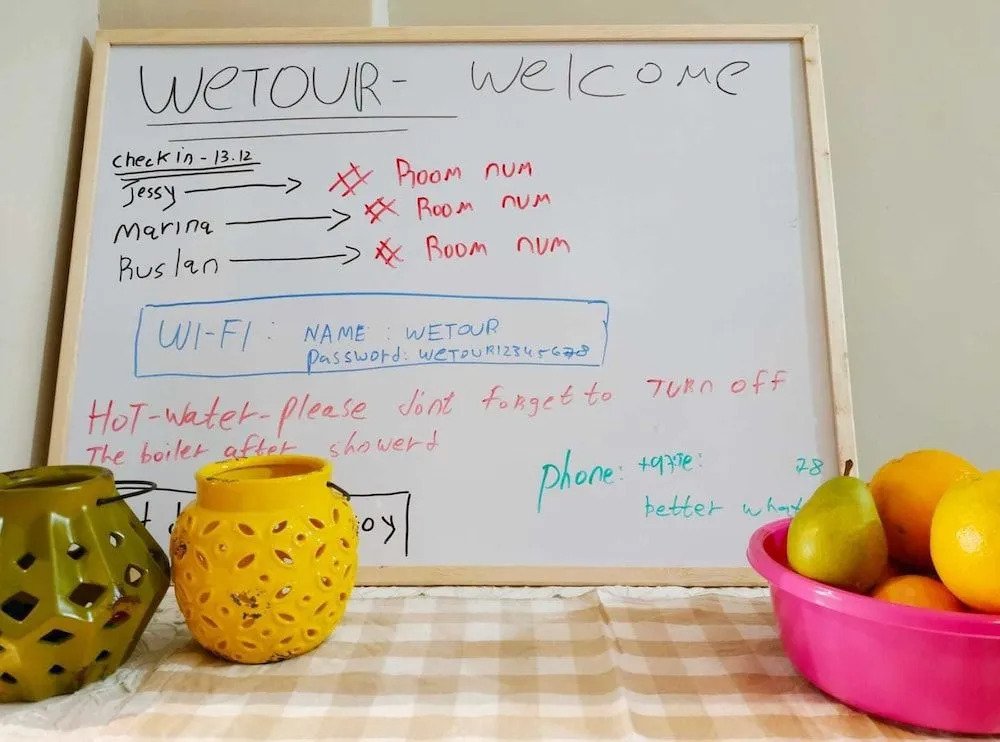 WeTOUR - Welcome
Check in - 13.12
Jessy → # Room num
Marina → # Room num
Ruslan → # Room num
WI-FI: NAME: WETOUR
password: WeTOUR12345678
HoT-water-please dont forget to TURN off
The boiler after showerd
phone: 28
better